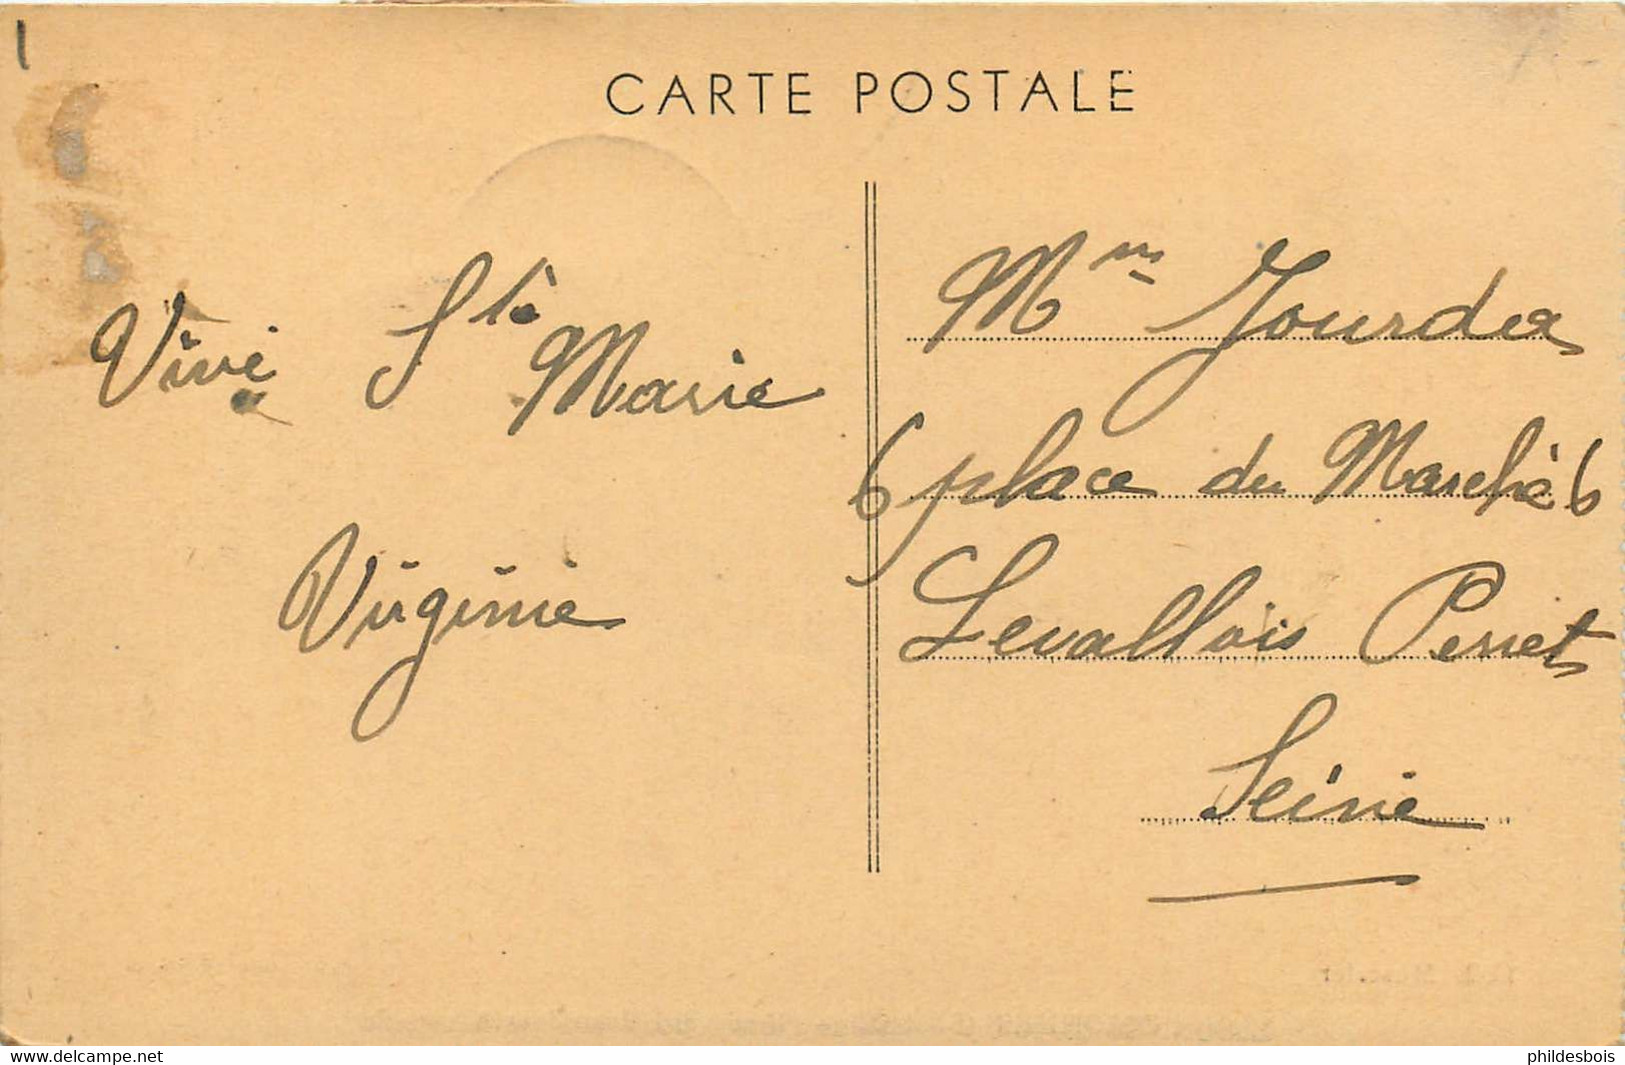 CARTE POSTALE
Vive Ste Marie
Virginie
Mme Jourdex
6 place du Marché 6
Levallois Perret
Seine
www.delcampe.net
phildesbois